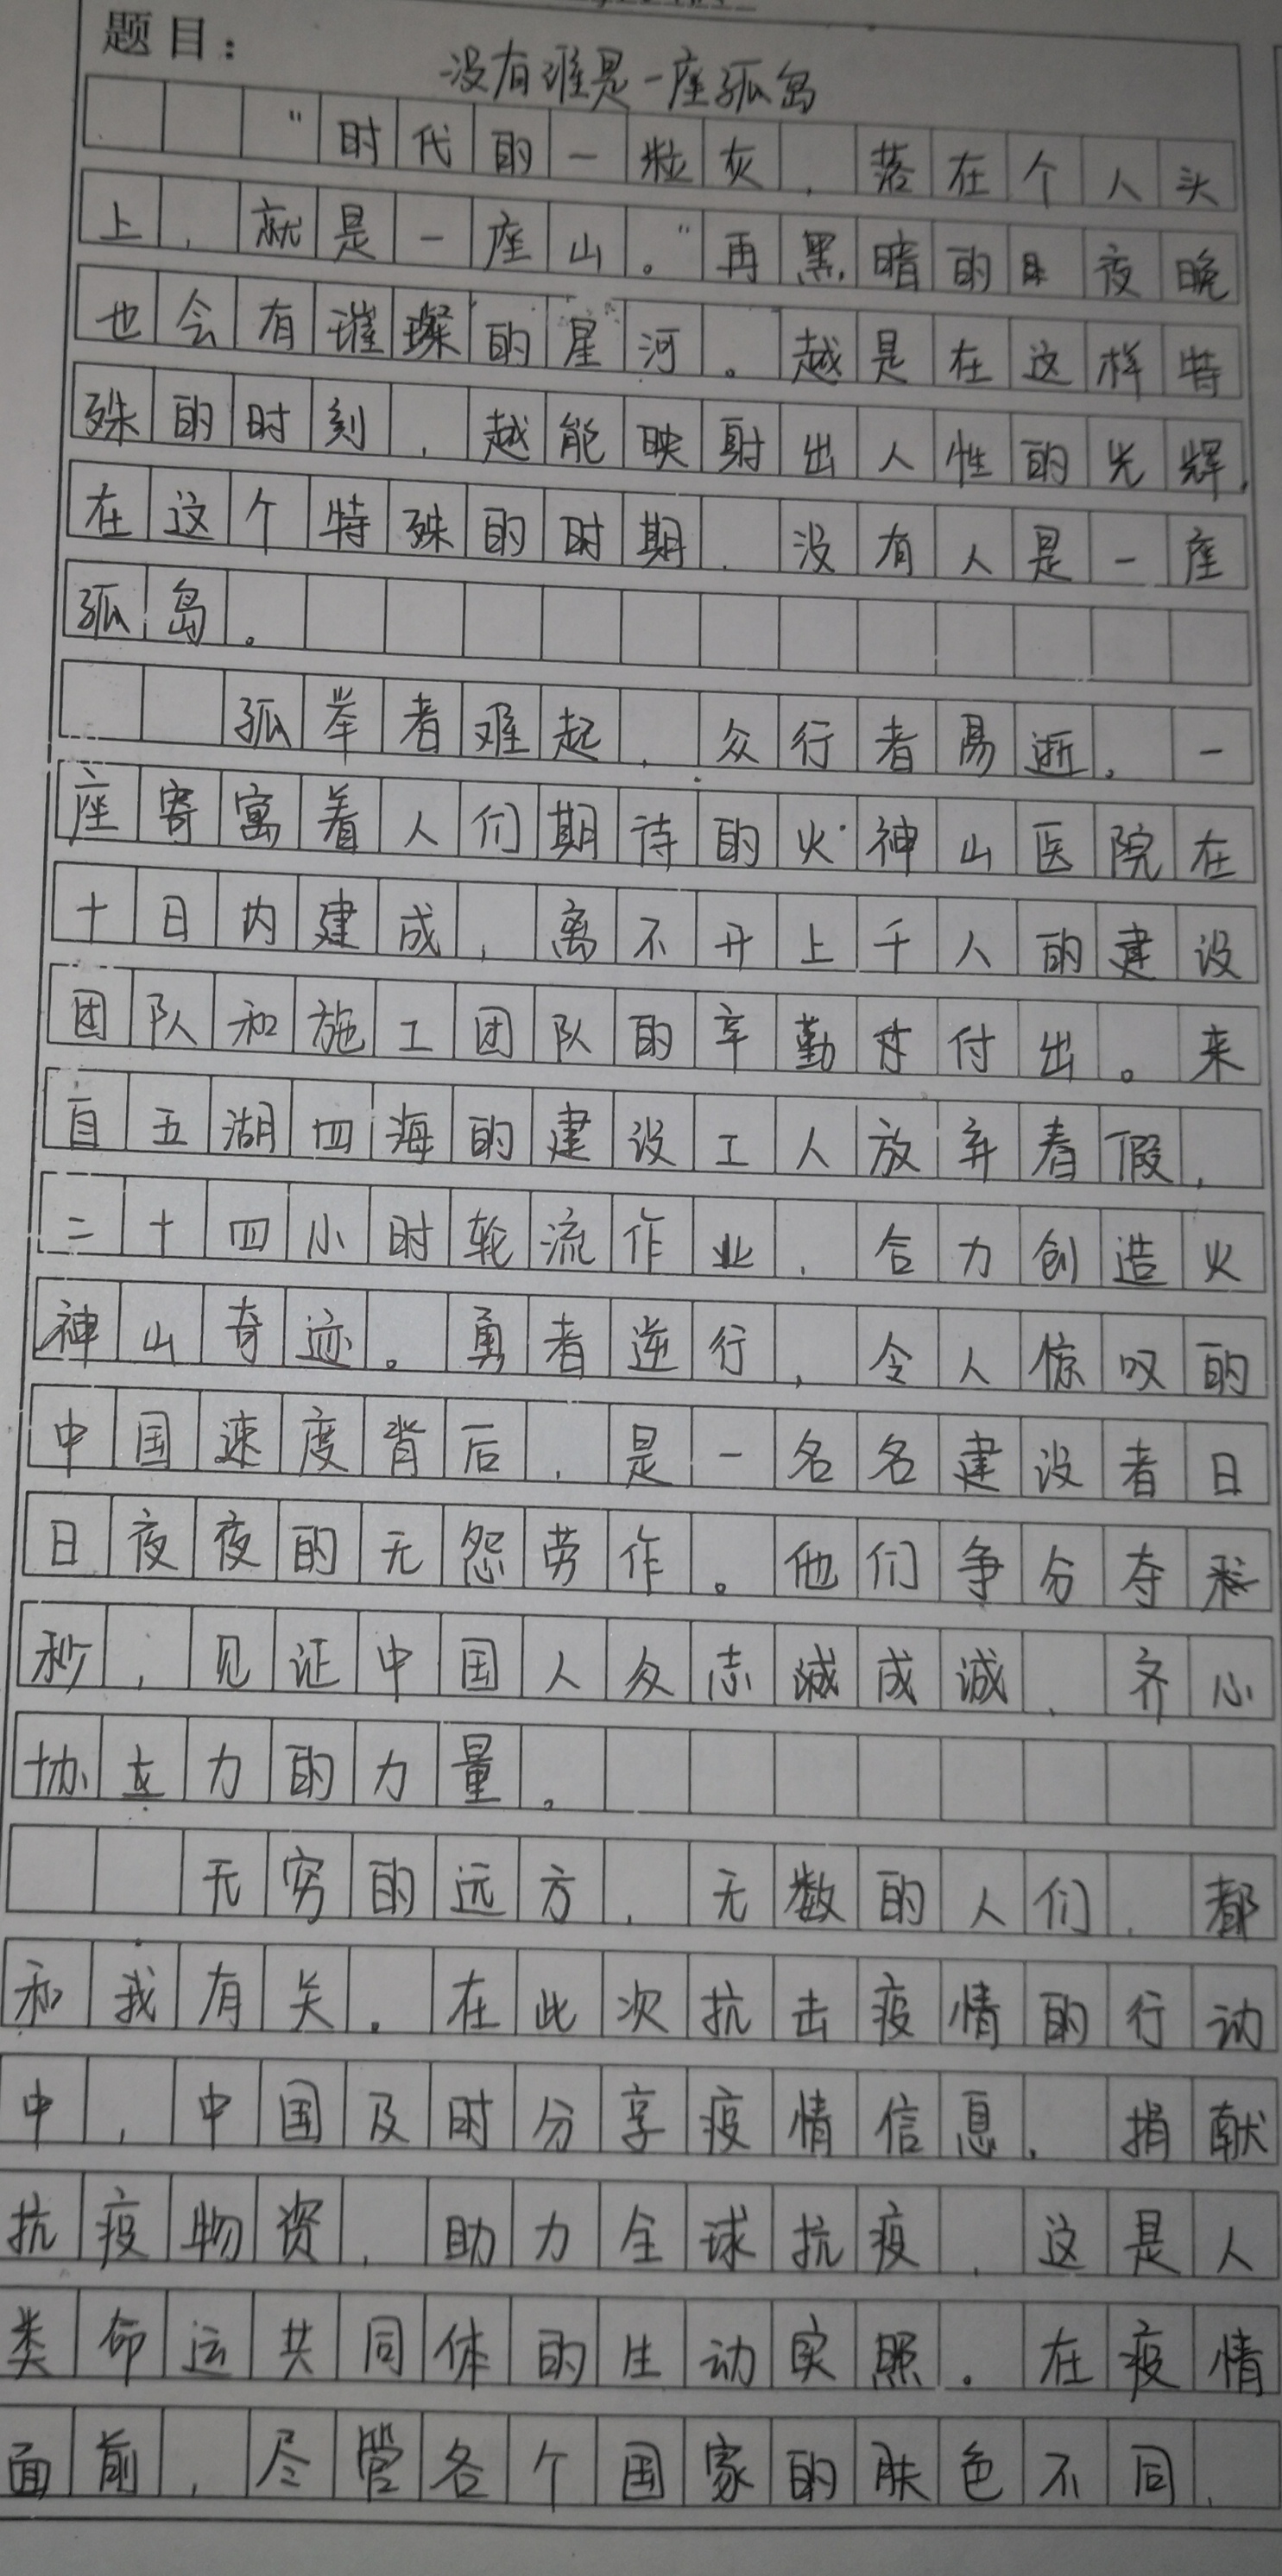 题目：
没有谁是一座孤岛
"时代的一粒灰，落在个人头
上，就是一座山。"再黑暗的夜晚
也会有璀璨的星河。越是在这样特
殊的时刻，越能映射出人性的光辉，
在这个特殊的时期，没有人是一座
孤岛。
孤举者难起，众行者易逝。一
座寄寓着人们期待的火神山医院在
十日内建成，离不开上千人的建设
团队和施工团队的辛勤付出。来
自五湖四海的建设工人放弃春假，
二十四小时轮流作业，合力创造火
神山奇迹。勇者逆行，令人惊叹的
中国速度背后，是一名名建设者日
日夜夜的无怨劳作。他们争分夺
秒，见证中国人众志诚成诚，齐心
协力的力量。
无穷的远方，无数的人们，都
和我有关。在此次抗击疫情的行动
中，中国及时分享疫情信息，捐献
抗疫物资，助力全球抗疫，这是人
类命运共同体的生动实照。在疫情
面前，尽管各个国家的肤色不同，